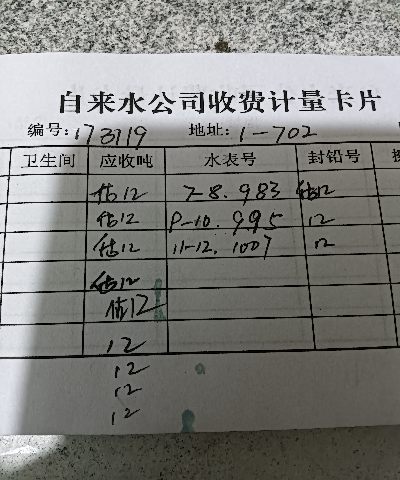 自来水公司收费计量卡片
编号:173719 地址:1-702
卫生间 应收吨 水表号 封铅号
估12 7-8.983 估12
估12 9-10.995 12
估12 11-12.1007 12
估12
估12
12
12
12
12